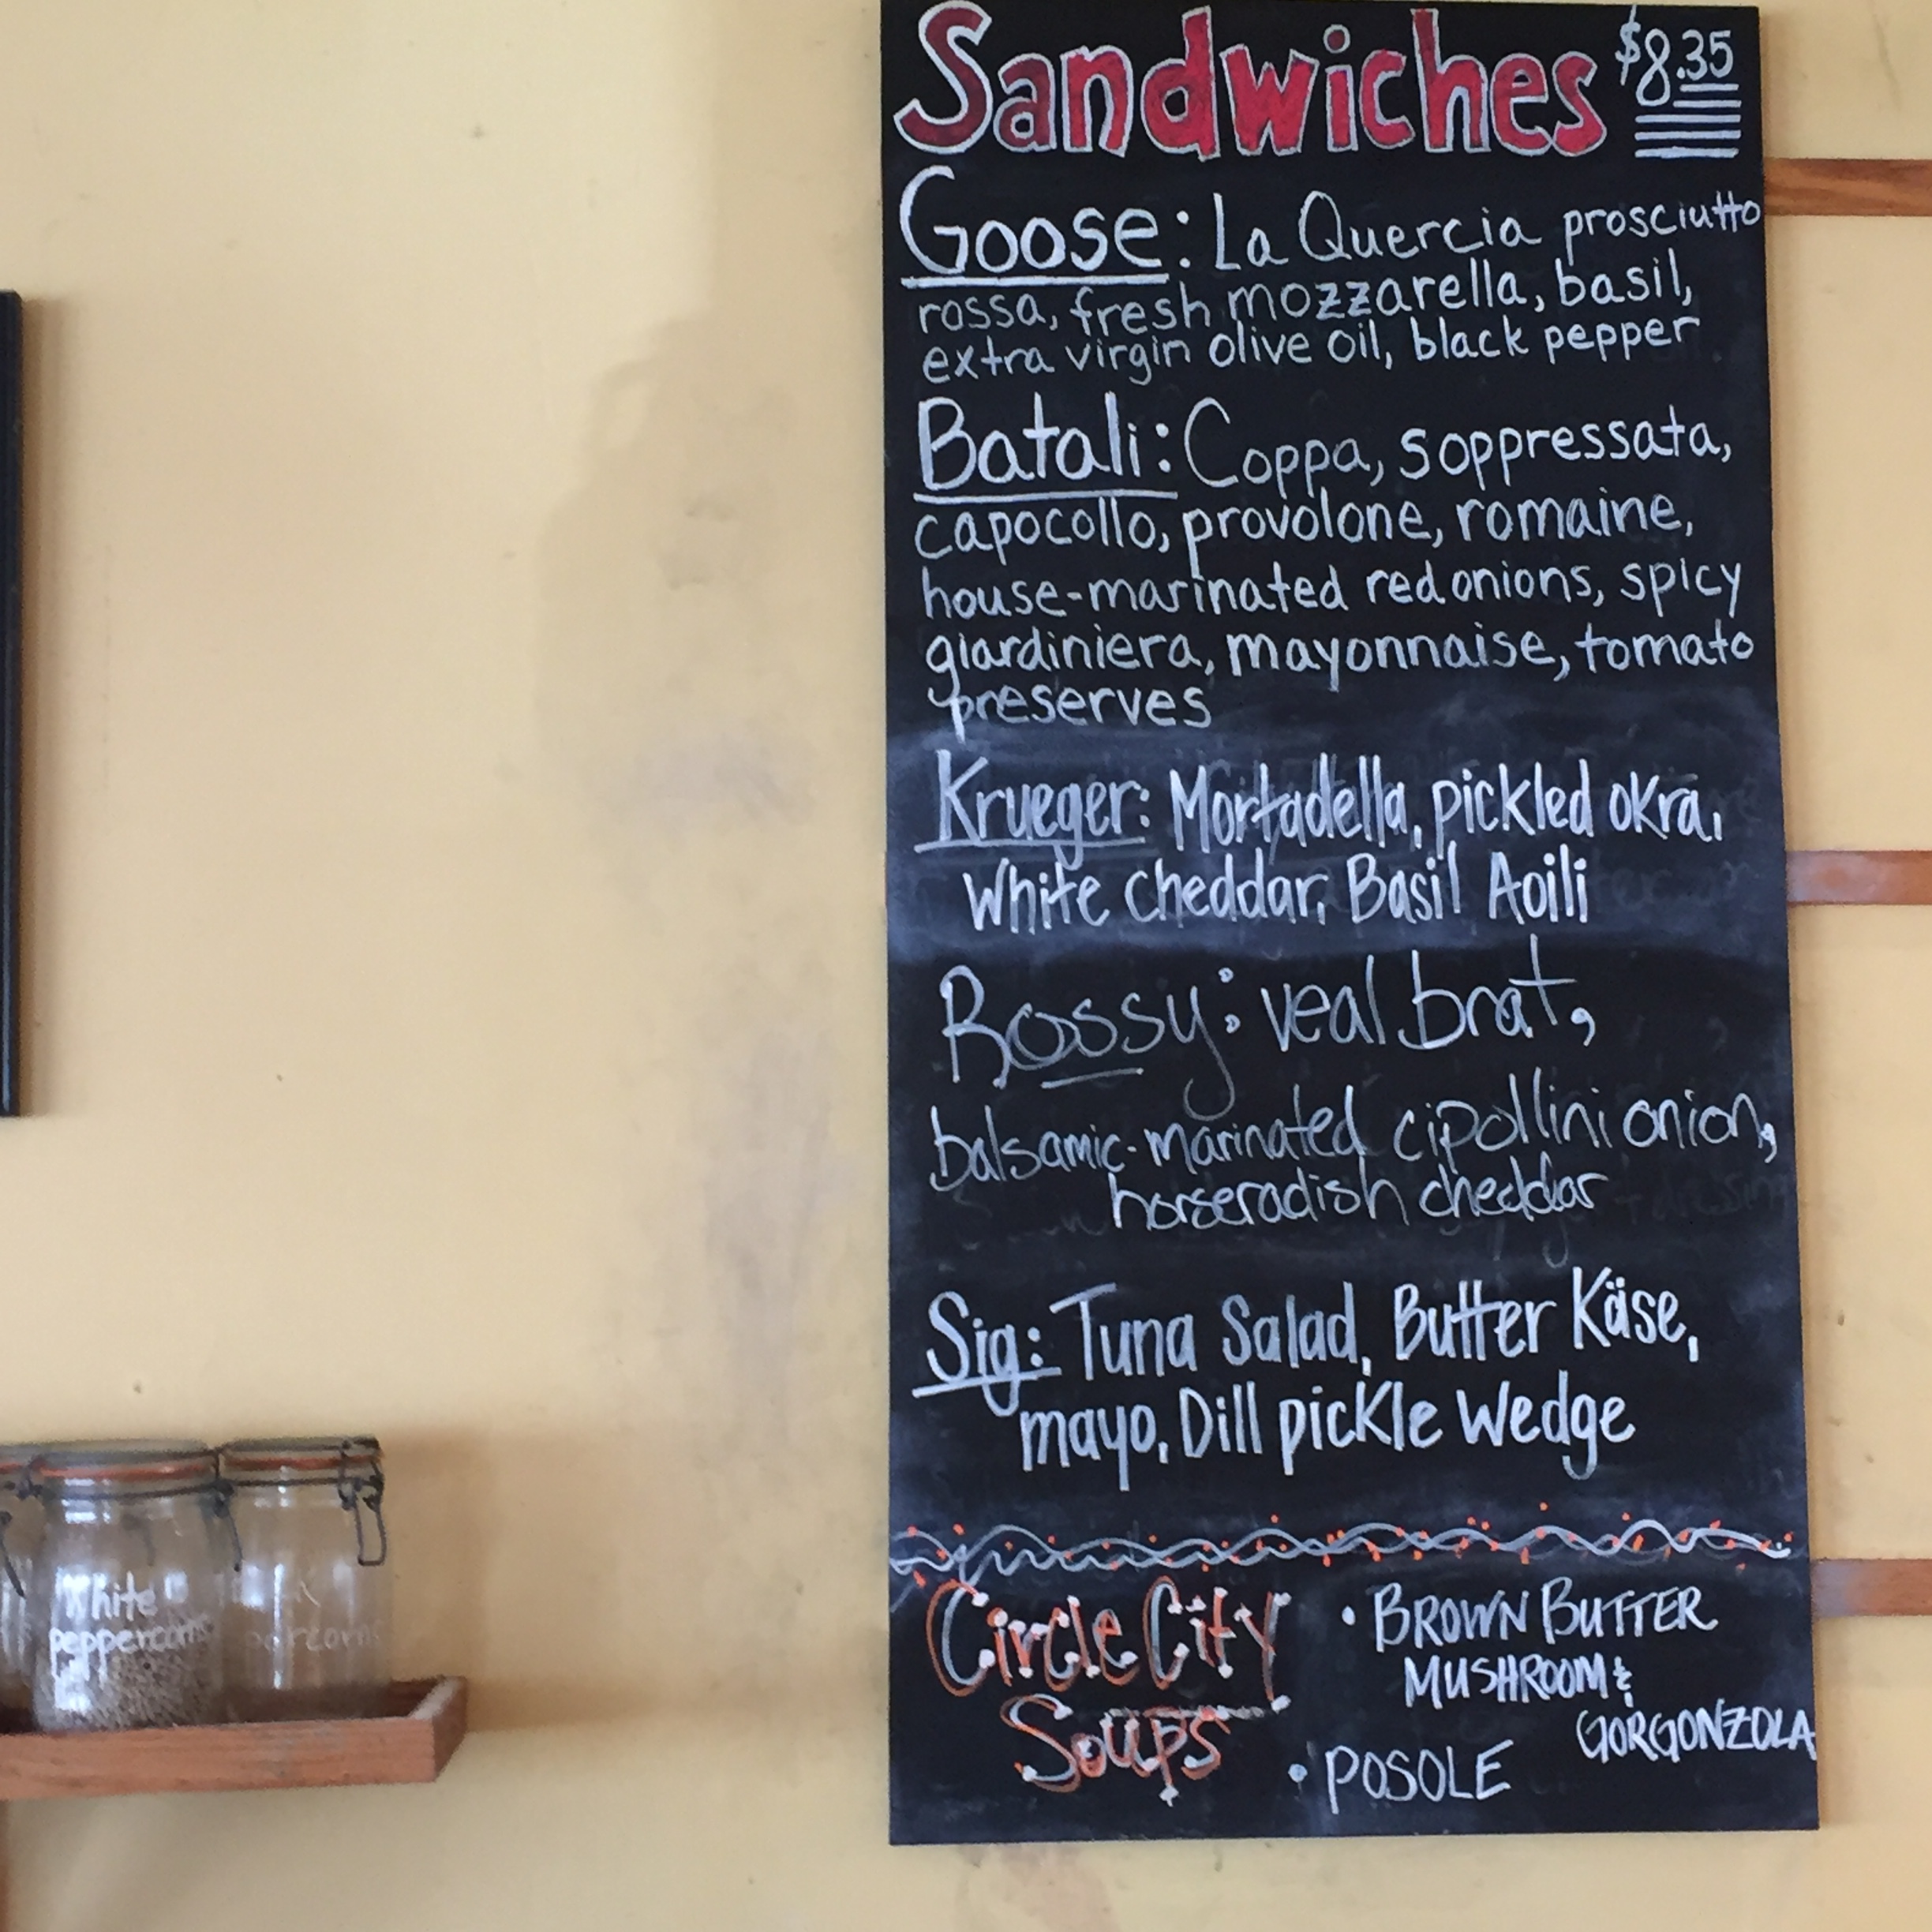 Sandwiches $8.35
Goose: La Quercia prosciutto
rossa, fresh mozzarella, basil,
extra virgin olive oil, black pepper
Batali: Coppa, soppressata,
capocollo, provolone, romaine,
house-marinated red onions, spicy
giardiniera, mayonnaise, tomato
preserves
Krueger: Mortadella, pickled okra,
White cheddar, Basil Aoili
Rossy: veal brat,
balsamic-marinated cipollini onion,
horseradish cheddar
Sig: Tuna Salad, Butter Käse,
mayo, Dill pickle Wedge
Circle City
Soups
• BROWN BUTTER
MUSHROOM &
GORGONZOLA
• POSOLE
White
peppercorns